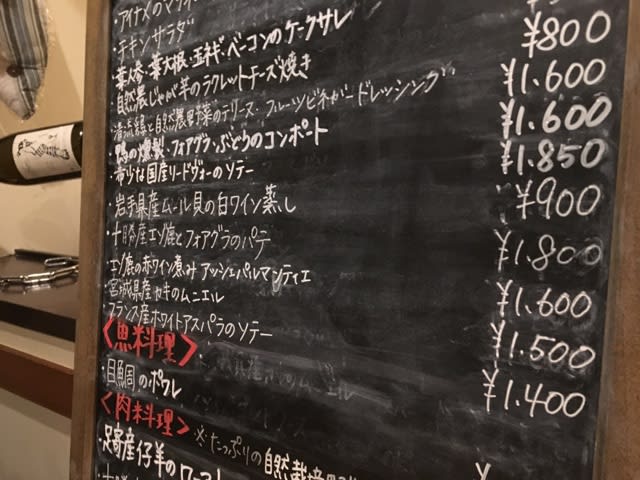 アイナメのマリネ
チキンサラダ ¥800
・葉大根・玉ネギ・ベーコンのケークサレ ¥1.600
・自然農じゃが芋のラクレットチーズ焼き ¥1.600
自然農野菜のテリーヌ・フルーツビネガードレッシング ¥1.850
・鴨の燻製・フォアグラ・ぶどうのコンポート ¥900
・希少な国産リードヴォーのソテー ¥1.800
・岩手県産ムール貝の白ワイン蒸し ¥1.600
・十勝産エゾ鹿とフォアグラのパテ ¥1.500
・エゾ鹿の赤ワイン煮みアッシェパルマンティエ ¥1.400
宮城県産カキのムニエル
フランス産ホワイトアスパラのソテー
<魚料理>
・目魚周のポワレ
<肉料理> ※たっぷりの自然栽培
・足寄産仔羊のロースト